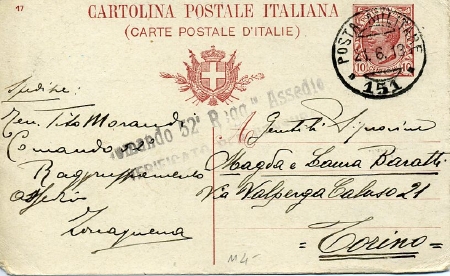 17
CARTOLINA POSTALE ITALIANA
(CARTE POSTALE D'ITALIE)
POSTA MILITARE
151
10
Spedisce:
Ten. Tito Morandi
Comando 32°
Raggruppamento
Assedio
Zona guerra
Comando 32° Ragg° Assedio
VERIFICATO
Gentili Signorine
Magda e Laura Baratti
Via Valperga Caluso 21
= Torino =